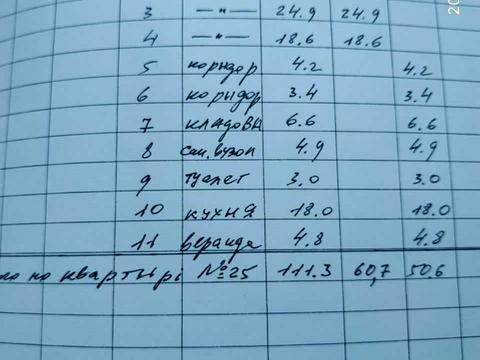 3 —"— 24.9 24.9
4 —"— 18.6 18.6
5 коридор 4.2 4.2
6 коридор 3.4 3.4
7 кладовк 6.6 6.6
8 сан.узол 4.9 4.9
9 туалет 3.0 3.0
10 кухня 18.0 18.0
11 веранда 4.8 4.8
по квартырі №25 111.3 60,7 50.6